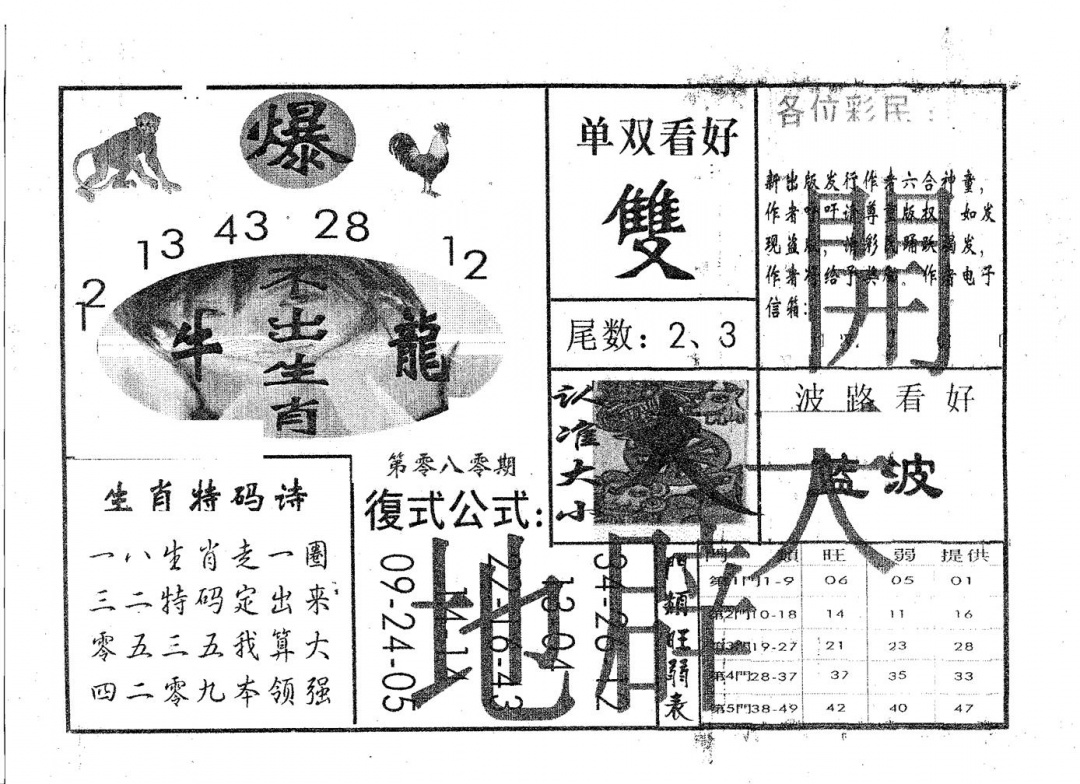 爆
13 43 28 12
12
不出生肖
牛
龍
单双看好
雙
尾数：2、3
各位彩民：
新出版发行作者六合神童，
作者吁吁请尊重版权 如发
现盗版，请彩民踊跃揭发，
作者将给予奖励。作者电子
信箱：
開
认准大小
大
波路看好
蓝波
天
第零八零期
復式公式：
09-24-05
27-16-43
13 04
34-26-12
地
生肖特码诗
一八生肖走一圈
三二特码定出来
零五三五我算大
四二零九本领强
門類旺弱表
門 類 旺 弱 提供
第1門1-9 06 05 01
第2門10-18 14 11 16
第3門19-27 21 23 28
第4門28-37 37 35 33
第5門38-49 42 40 47